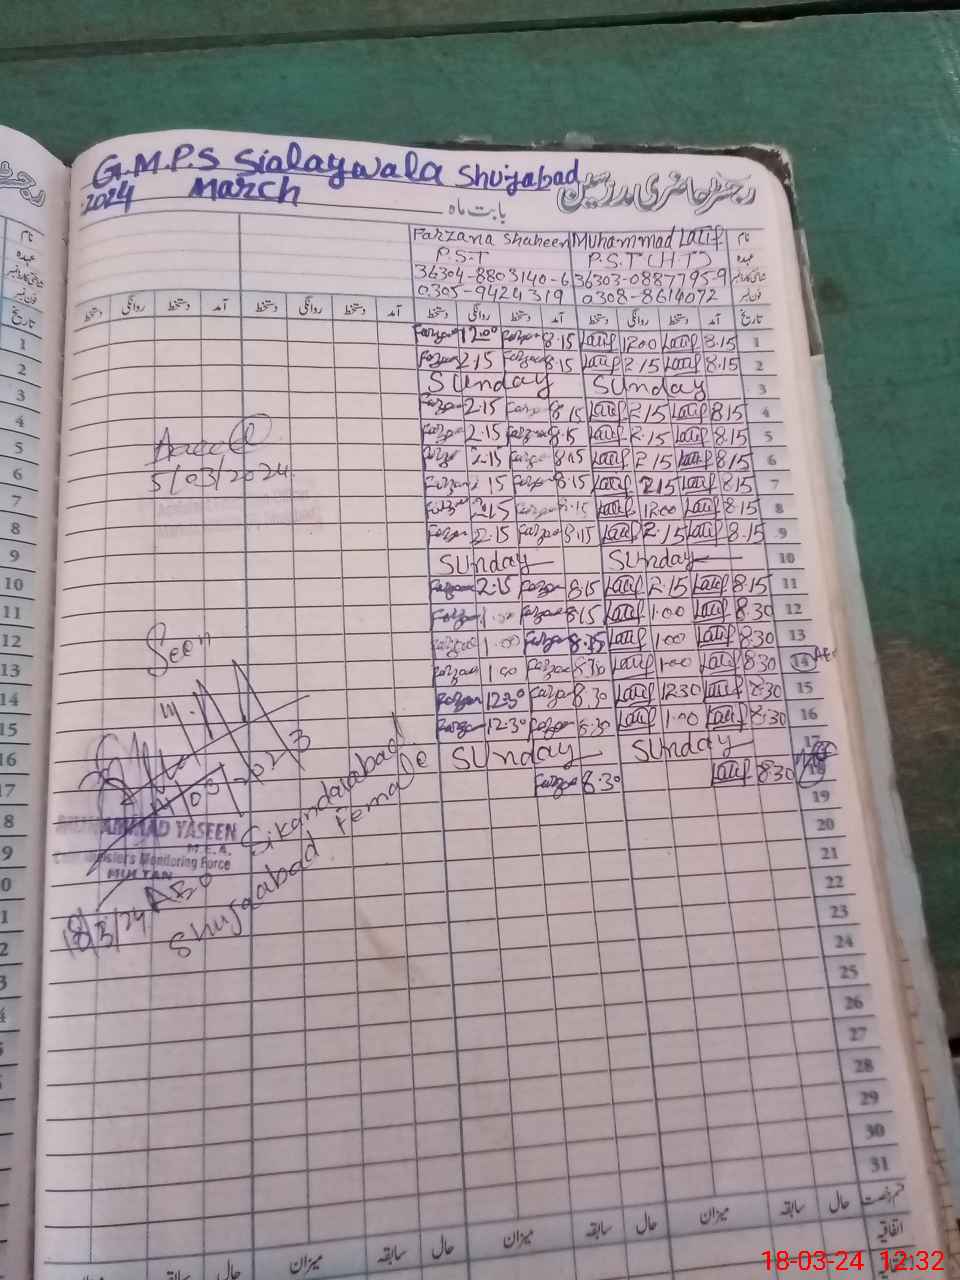 G.M.P.S Sialaywala Shujabad
رجسٹر حاضری مدرسین
2024 March
بابت ماہ
Farzana Shaheen Muhammad Latif نام
P.S.T P.S.T (H.T) عہدہ
36304-8803140-6 36303-0887795-9
0305-9424319 0308-8614072 فون نمبر
دستخط روانگی دستخط آمد دستخط روانگی دستخط آمد دستخط روانگی دستخط آمد دستخط روانگی دستخط آمد تاریخ
Farzana 12.00 Farzana 8.15 Latif 12.00 Latif 8.15 1
Farzana 2.15 Farzana 8.15 Latif 2.15 Latif 8.15 2
Sunday Sunday 3
Farzana 2.15 Farzana 8.15 Latif 2.15 Latif 8.15 4
Farzana 2.15 Farzana 8.15 Latif 2.15 Latif 8.15 5
Farzana 2.15 Farzana 8.15 Latif 2.15 Latif 8.15 6
Farzana 2.15 Farzana 8.15 Latif 2.15 Latif 8.15 7
Farzana 2.15 Farzana 8.15 Latif 12.00 Latif 8.15 8
Farzana 2.15 Farzana 8.15 Latif 2.15 Latif 8.15 9
Sunday Sunday 10
Farzana 2.15 Farzana 8.15 Latif 2.15 Latif 8.15 11
Farzana 1.00 Farzana 8.15 Latif 1.00 Latif 8.30 12
Farzana 1.00 Farzana 8.15 Latif 1.00 Latif 8.30 13
Farzana 1.00 Farzana 8.30 Latif 1.00 Latif 8.30 14
Farzana 12.30 Farzana 8.30 Latif 12.30 Latif 8.30 15
Farzana 12.30 Farzana 8.30 Latif 1.00 Latif 8.30 16
Sunday Sunday 17
Farzana 8.30 Latif 8.30
19
20
21
22
23
24
25
26
27
28
29
30
31
5/03/2024
Seen
MUHAMMAD YASEEN
M.E.A.
Chief Ministers Monitoring Force
MULTAN
18/3/24
Sikandarabad
Shujaabad Female
میزان سابقہ حال میزان سابقہ حال میزان سابقہ حال قسم رخصت
اتفاقیہ
18-03-24 12:32